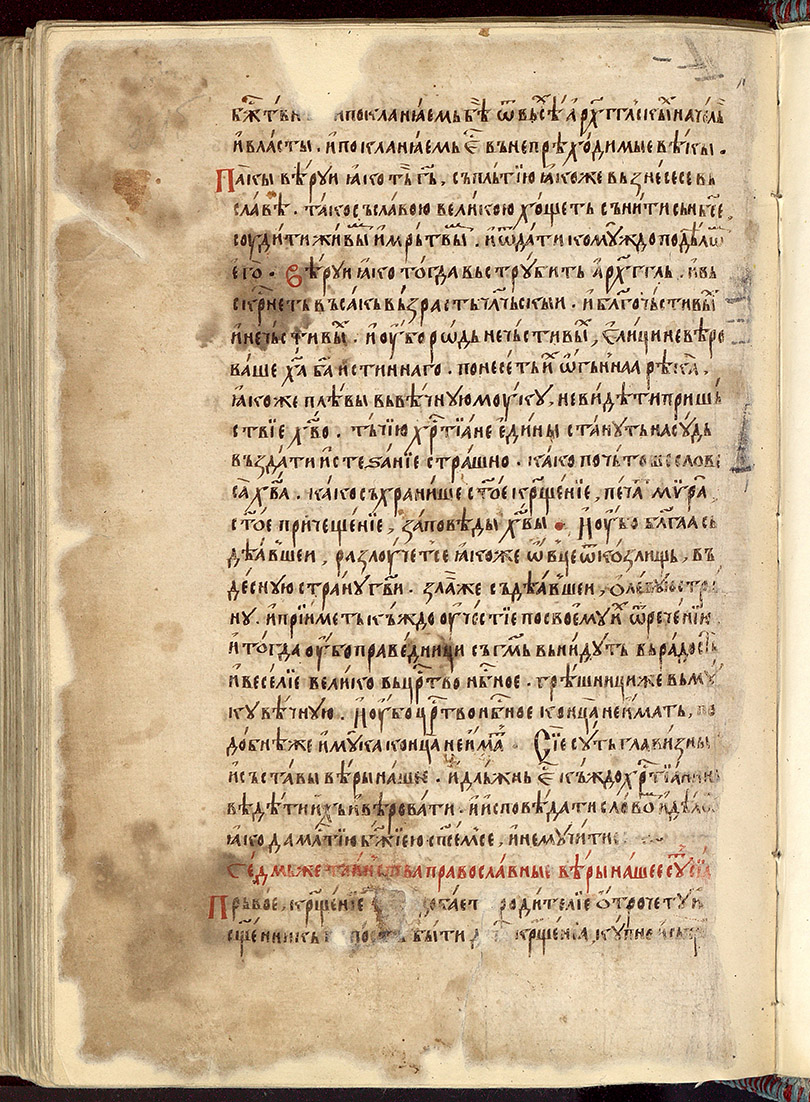 и покланꙗемь бѣ ѿ всѣ́ а҆рх҃гг҃лскы
и҆ власты . и҆ покланꙗ́емь є҆ въ непрѣхо́димые вѣ́кы .
Па́кы вѣ́руи ꙗ҆́ко тъ́ гь҃, съ пль́тїю ꙗ҆́коже вьзне́сесе вь
сла́вѣ . та́ко съ сла́вою вели́кою хо́щеть съни́ти сь нб҃се,
соуди́ти жи́вы и҆ мрь́твы . и҆ ѿда́ти комꙋ́ждо по дѣ́лѡ
є҆го̀ . Вѣ́руи ꙗ҆́ко то́гда вьстру́бить а҆рх҃гг҃ль . и҆ вь
въса́кь вь́зрасть чл҃чьскыи . и҆ бл҃гочь́стивы
и҆ нечь́стивы . и҆ оу҆́бо рѡ́дь нече́стивы, є҆ли́ци не вѣ́ро
ва́ше х҃а б҃а и҆́стиннаго . понесе́ть и҆ ѡ҆́гьннаа рѣ́ка,
ꙗ҆́коже пле́вы вь вѣ́чную моу́ку, не ви́дѣти пришь
ствїе х҃во . тъ́чїю хр҃тїа́не е҆ди́ны ста́нуть на су́дь
въ́зда́ти и҆стеѕа́нїе стра́шно . ка́ко почь́то
са х҃а . ка́ко съхрани́ше ст҃ое кр҃ще́нїе, печа мѵ́ра,
ст҃ое приче́щенїе, за́повѣды х҃вы И҆ оу҆́бо бл҃га́а сь
дѣ́авшеи, разлоу́четсе ꙗ҆́коже ѡ҆́вце ѿ ко́злищь, въ
де́сную стра́ну г҃ни . зла́ же съдѣ́авшеи, о҆ ле́вую стра
ну . и҆ прїи́меть къ́ждо оу҆че́стїе по свое́му и҆ ѿ рече́нїи
и҆ то́гда оу҆́бо праве́дници съ г҃мь вьни́дуть вь ра́дость
и҆ ве́селїе вели́ко вь цр҃тво нб҃ное . грѣ́шници же вь мꙋ́
ку вѣ́чную . И҆ оу҆́бо цр҃тво нб҃ное ко́нца не и҆́мать, по
до́бнѣ же и҆ мꙋ́ка ко́нца не и҆́ма . Сїе су́ть гла́визны
и҆ съста́вы вѣ́ры на́шее . и҆ дль́жнь є҆ къ́ждо хр҃тїа́нинь
вѣ́дѣти и҆́хъ и҆ вѣ́ровати . и҆ и҆сповѣ́дати сло́во и҆ дѣ́ло
ꙗ҆́ко да бж҃їею и҆ не му́чити
Се́дмь же та́инства правосла́вные вѣ́ры на́шее су́ сїа
Прь́вое, кр҃ще́нїе роди́телїе о҆́трочету
бы́ти кр҃ще́нїа, ку́пне и҆